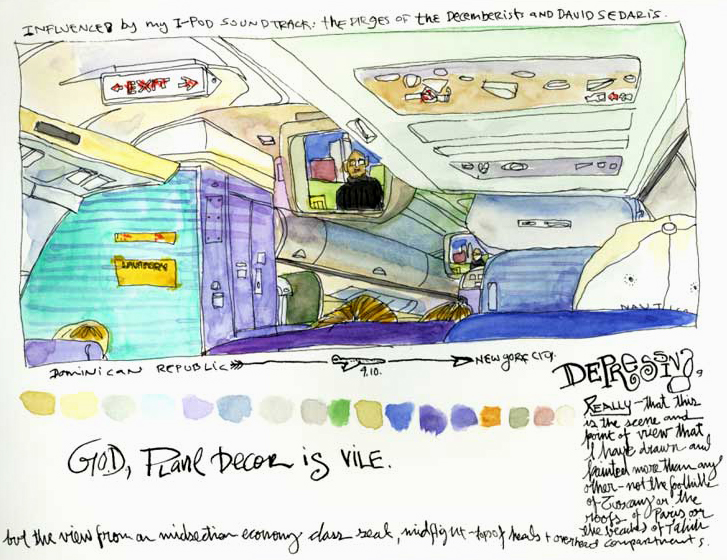 INFLUENCED by my I-POD SOUNDTRACK: the DIRGES OF the DECEMBERISTS AND DAVID SEDARIS.
EXIT
LAVATORY
NAUTI
DOMINICAN REPUBLIC
9.10.
NEW YORK CITY.
DEPRESSING,
REALLY - that this
is the scene and
point of view that
I have drawn and
painted more than any
other - not the foothills
of Tuscany or the
roofs of Paris or
the beaches of Tahiti
GOD, PLANE DECOR is VILE.
but the view from an midsection economy class seat, midflight - tops of heads + overhead compartments.